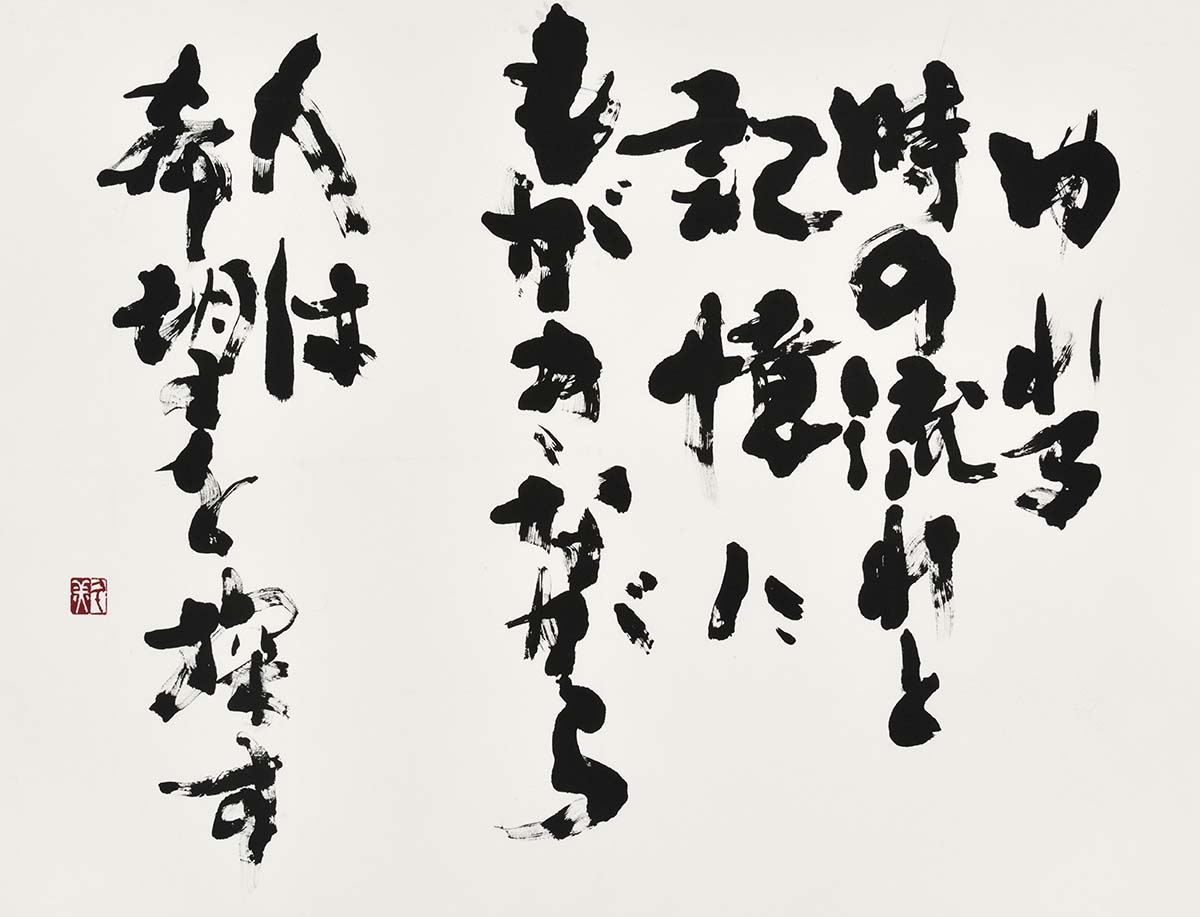 ゆれる
時の流れと
記憶に
もがきながら
人は
希望を探す